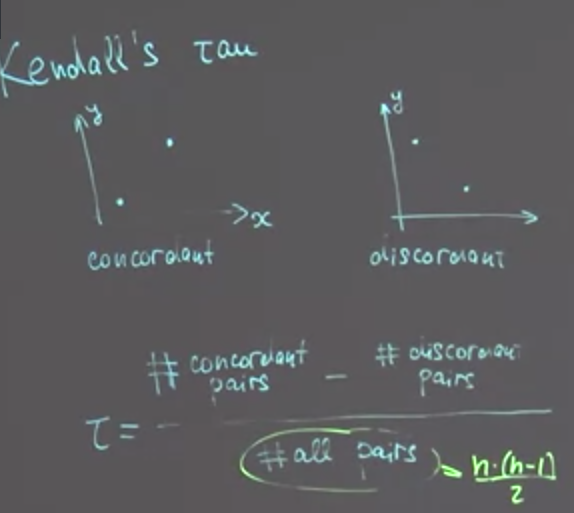 Kendall's tau
y
y
x
concordant
discordant
# concordant pairs - # discordant pairs
τ = 
# all pairs = n·(n-1)/2